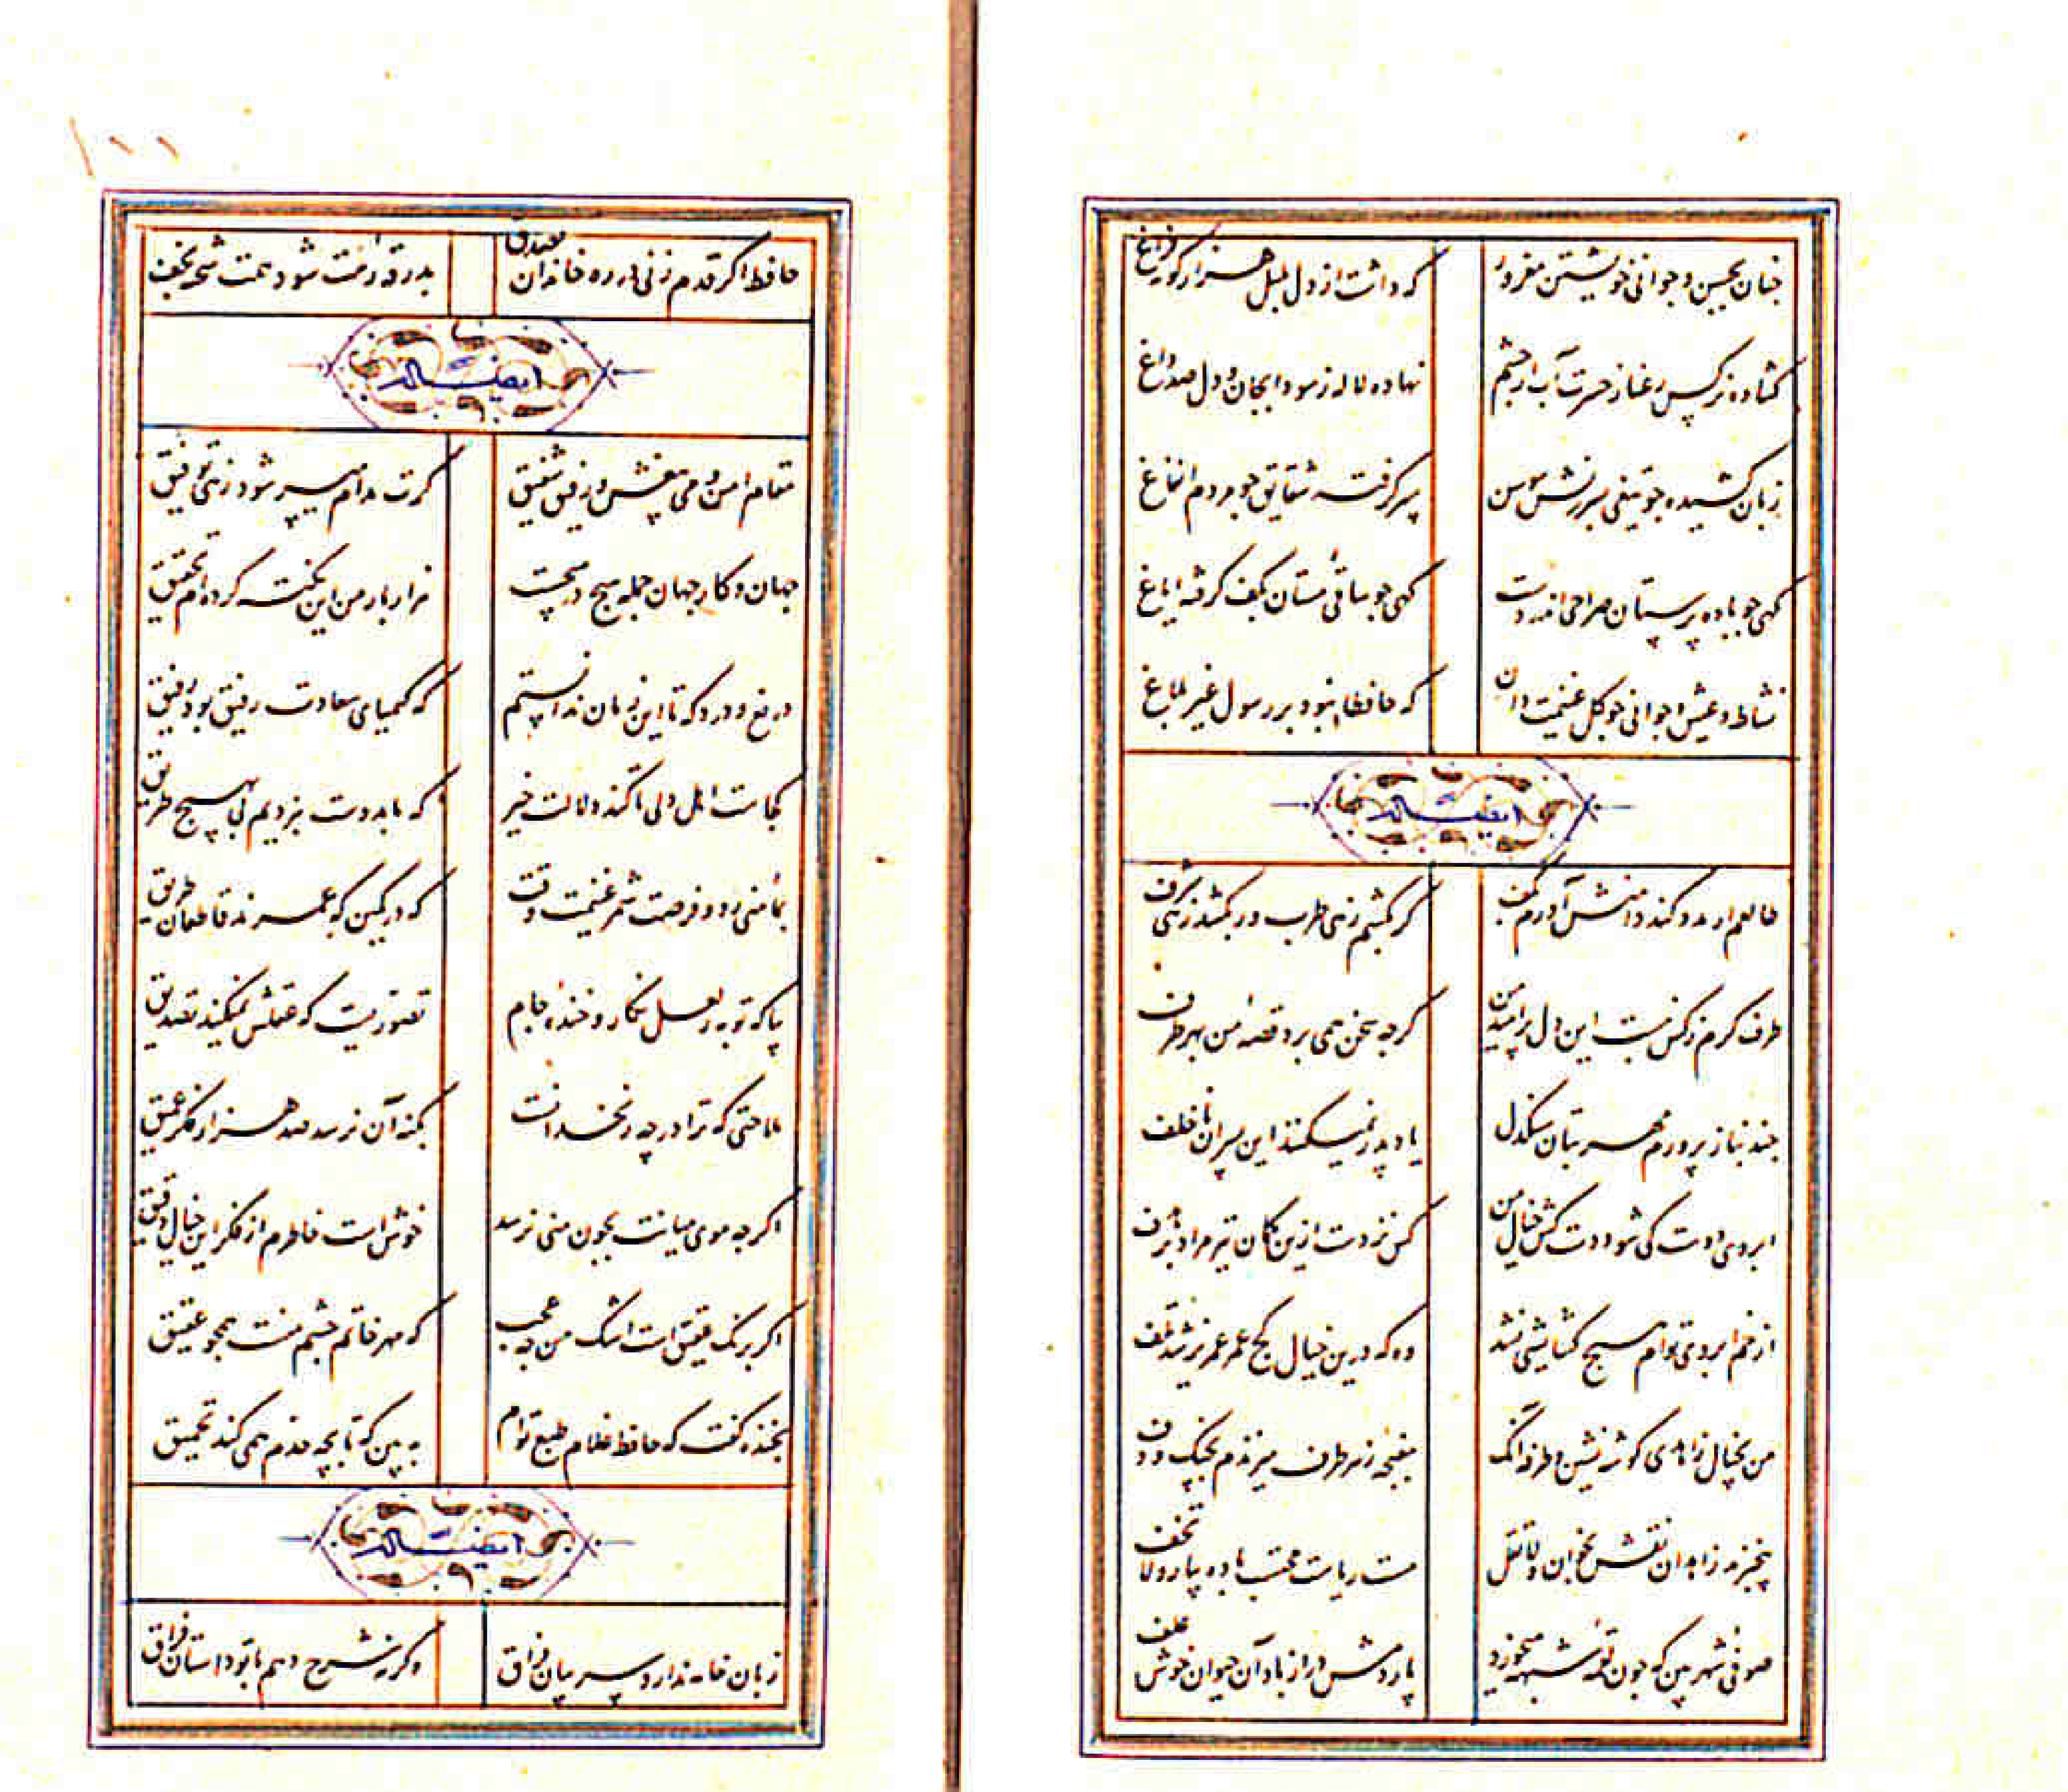 چنان بحسن و جوانی خویشتن مغرور
که داشت از دل بلبل هزار کونه فراغ
کشاده نرکس رعنا ز حسرت آب از چشم
نهاده لاله ز سودا بجان و دل صد داغ
زبان کشیده چو تیغی بسرزنش سوسن
سپر کرفته شقایق چو مردم ایغاغ
کهی چو باده پرستان صراحی اندر دست
کهی چو ساقی مستان بکف کرفته ایاغ
نشاط و عیش و جوانی چو کل غنیمت دان
که حافظا نبود بر رسول غیر بلاغ
ایضا له
طالع اکر مدد کند دامنش آورم بکف
کر بکشم زهی طرب ور بکشد زهی شرف
طرف کرم ز کس نبست این دل پر امید من
کر چه سخن همی برد قصه من بهر طرف
چند بناز پرورم مهر بتان سنکدل
یاد پدر نمیکنند این پسران ناخلف
ابروی دوست کی شود دست کش خیال من
کس نزدست ازین کمان تیر مراد بر هدف
از خم ابروی توام هیچ کشایشی نشد
وه که درین خیال کج عمر عزیز شد تلف
من بخیال زاهدی کوشه نشین و طرفه آنک
مغبچه ز هر طرف میزندم بچنک و دف
بیخبرند زاهدان نقش بخوان و لا تقل
مست ریاست محتسب باده بیار و لا تخف
صوفی شهر بین که چون لقمه شبهه میخورد
پاردمش دراز باد آن حیوان خوش علف
حافظ اکر قدم زنی در ره خاندان بصدق
بدرقه رهت شود همت شحنه نجف
ایضا له
مقام امن و می بیغش و رفیق شفیق
کرت مدام میسر شود زهی توفیق
جهان و کار جهان جمله هیچ در هیچست
هزار بار من این نکته کرده ام تحقیق
دریغ و درد که تا این زمان ندانستم
که کیمیای سعادت رفیق بود رفیق
کجاست اهل دلی تا کند دلالت خیر
که ما بدوست نبردیم ره بهیچ طریق
بمأمنی رو و فرصت شمر غنیمت وقت
که در کمین که عمرند قاطعان طریق
بیا که توبه ز لعل نکار و خنده جام
تصوریست که عقلش نمیکند تصدیق
ملاحتی که ترا در چه زنخدانست
بکنه آن نرسد صد هزار فکر عمیق
اکر چه موی میانت بچون منی نرسد
خوش است خاطرم از فکر این خیال دقیق
اکر برنک عقیق است اشک من چه عجب
که مهر خاتم چشم منست همچو عقیق
بخنده کفت که حافظ غلام طبع توام
به بین که تا بچه حدم همی کند تحمیق
ایضا له
زبان خامه ندارد سر بیان فراق
وکرنه شرح دهم با تو داستان فراق